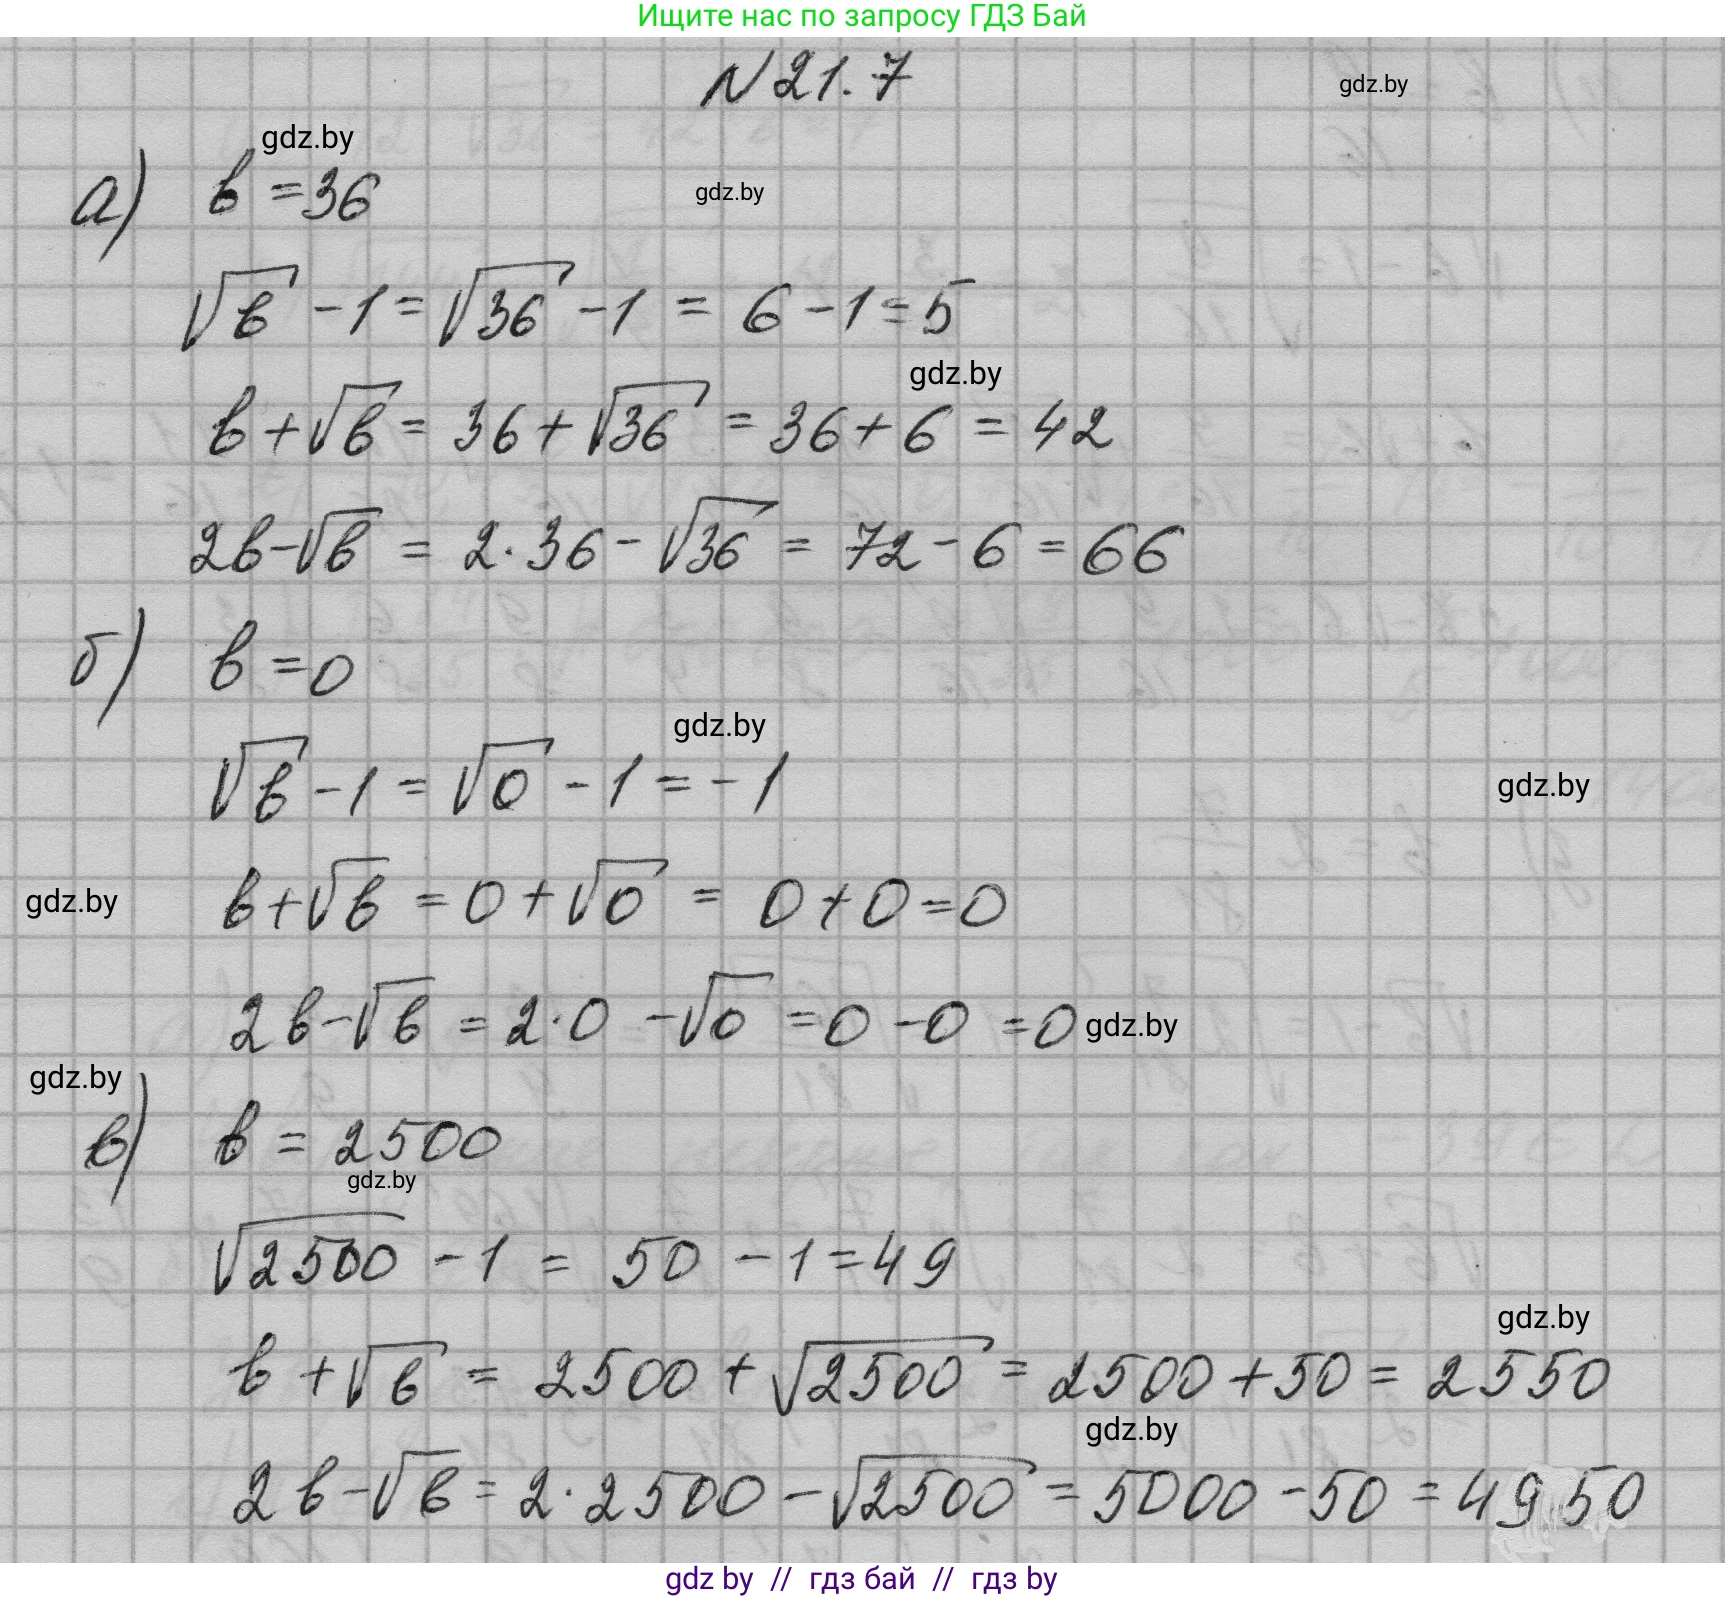 Ищите нас по запросу ГДЗ Бай
N 21.7
gdz.by
gdz.by
а) в = 36
gdz.by
√в - 1 = √36 - 1 = 6 - 1 = 5
gdz.by
в + √в = 36 + √36 = 36 + 6 = 42
2в - √в = 2 · 36 - √36 = 72 - 6 = 66
б) в = 0
gdz.by
√в - 1 = √0 - 1 = - 1
gdz.by
gdz.by
в + √в = 0 + √0 = 0 + 0 = 0
2в - √в = 2 · 0 - √0 = 0 - 0 = 0
gdz.by
gdz.by
в) в = 2500
gdz.by
√2500 - 1 = 50 - 1 = 49
gdz.by
в + √в = 2500 + √2500 = 2500 + 50 = 2550
gdz.by
2в - √в = 2 · 2500 - √2500 = 5000 - 50 = 4950
gdz by // гдз бай // гдз by